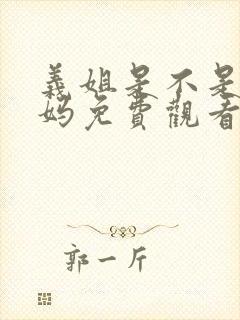 義姐是不是
妈免費觀看
郭一斤